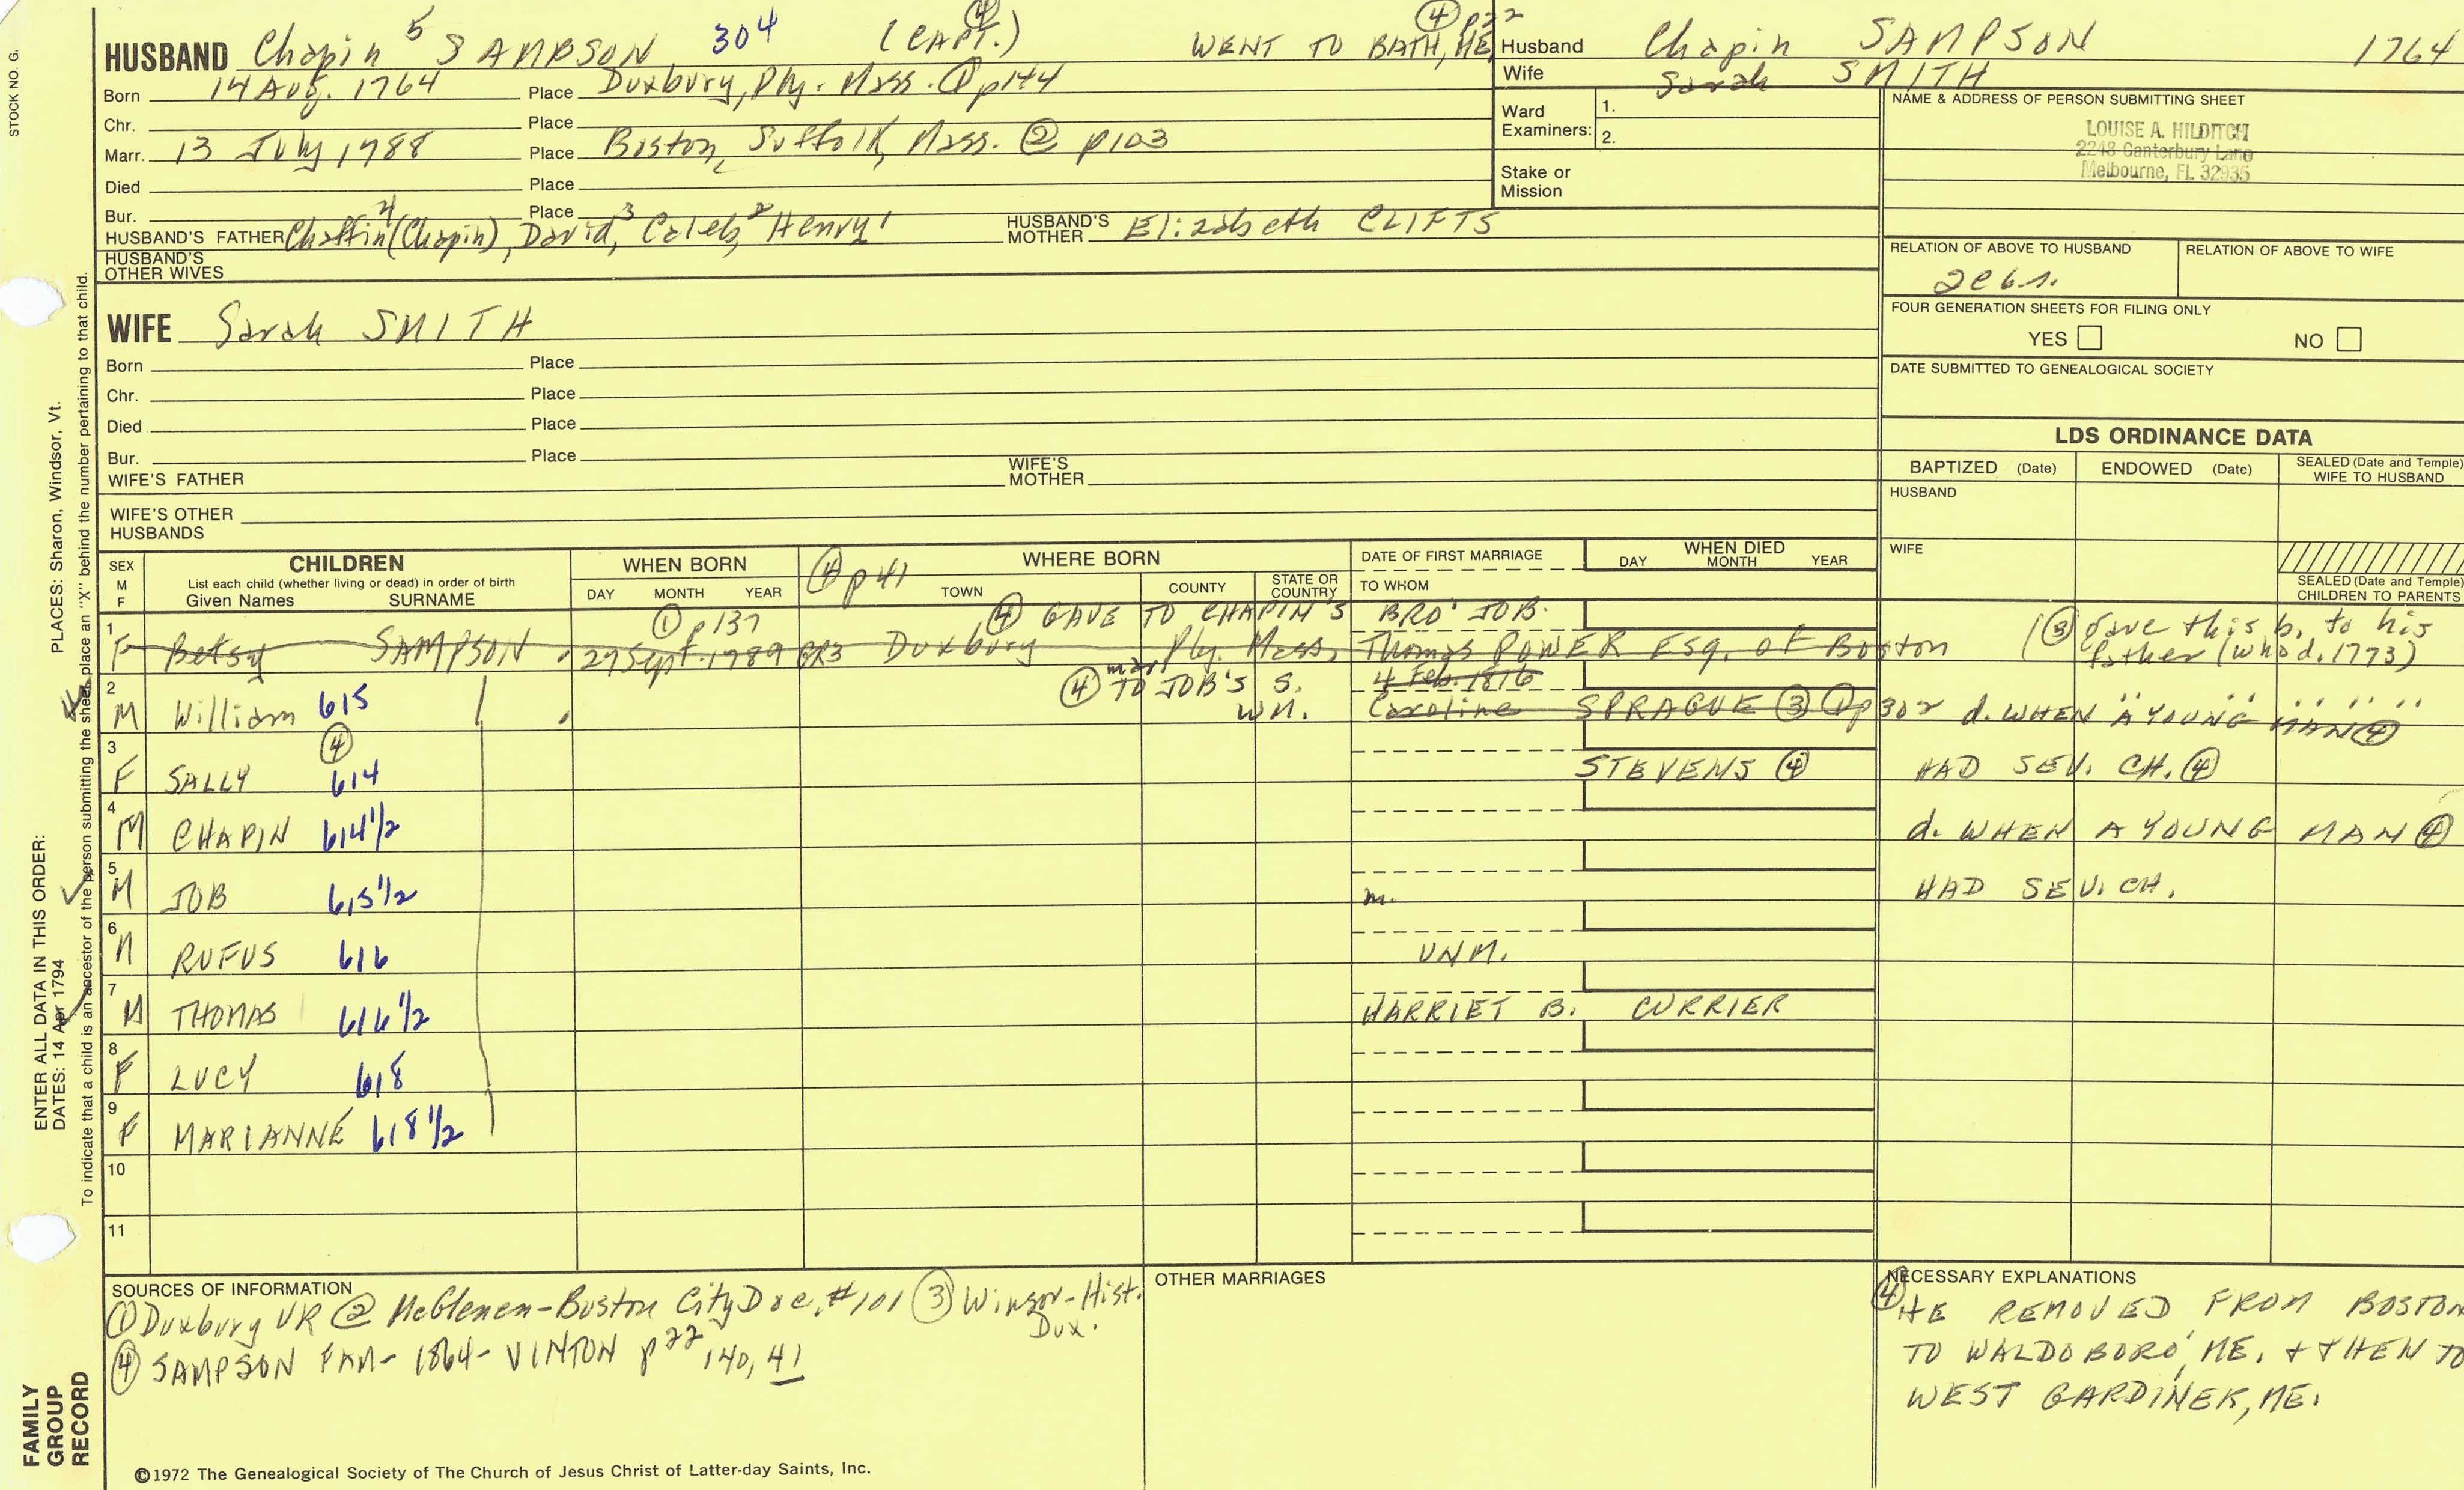 STOCK NO. G.
HUSBAND Chapin 5 SAMPSON 304 (CAPT.) ④ WENT TO BATH, ME ④ p22
Born 14 Aug. 1764 Place Duxbury, Ply. Mass. ① p144
Chr. Place
Marr. 13 July 1788 Place Boston, Suffolk, Mass. ② p103
Died Place
Bur. Place
HUSBAND'S FATHER Chaffin 4 (Chapin), David, 3 Caleb, 2 Henry 1 HUSBAND'S MOTHER Elizabeth CLIFTS
HUSBAND'S OTHER WIVES
Husband Chapin SAMPSON 1764
Wife Sarah SMITH
Ward Examiners: 1.
2.
Stake or Mission
NAME & ADDRESS OF PERSON SUBMITTING SHEET
LOUISE A. HILDITCH
2248 Canterbury Lane
Melbourne, Fl. 32935
RELATION OF ABOVE TO HUSBAND RELATION OF ABOVE TO WIFE
FOUR GENERATION SHEETS FOR FILING ONLY
YES NO
DATE SUBMITTED TO GENEALOGICAL SOCIETY
WIFE Sarah SMITH
Born Place
Chr. Place
Died Place
Bur. Place
WIFE'S FATHER WIFE'S MOTHER
WIFE'S OTHER HUSBANDS
LDS ORDINANCE DATA
BAPTIZED (Date) ENDOWED (Date) SEALED (Date and Temple) WIFE TO HUSBAND
HUSBAND
WIFE
SEALED (Date and Temple) CHILDREN TO PARENTS
SEX M F CHILDREN WHEN BORN ④ p41 WHERE BORN DATE OF FIRST MARRIAGE WHEN DIED
List each child (whether living or dead) in order of birth
Given Names SURNAME DAY MONTH YEAR TOWN COUNTY STATE OR COUNTRY TO WHOM DAY MONTH YEAR
1 ① p137 ④ GAVE TO CHAPIN'S BRO' JOB.
F Betsy SAMPSON 27 Sept. 1789 GR3 Duxbury Ply. Mass, Thomas POWER Esq. of Boston (③ Gave this b. to his father (who d. 1773)
2 ④ mar TO JOB'S S. 4 Feb. 1816
M William 615 WM. Caroline SPRAGUE ③ ① p302 d. WHEN A YOUNG MAN ④
3 ④
F SALLY 614 STEVENS ④ HAD SEV. CH. ④
4
M CHAPIN 614½ d. WHEN A YOUNG MAN ④
5
M JOB 615½ m. HAD SEV. CH.
6
M RUFUS 616 UNM.
7
M THOMAS 616½ HARRIET B. CURRIER
8
F LUCY 618
9
F MARIANNE 618½
10
11
SOURCES OF INFORMATION
① Duxbury VR ② McGlenen-Boston City Doc. #101 ③ Winsor-Hist. Dux.
④ SAMPSON FAM- 1864- VINTON p22, 140, 41
OTHER MARRIAGES
NECESSARY EXPLANATIONS
④ HE REMOVED FROM BOSTON
TO WALDOBORO', ME. & THEN TO
WEST GARDINER, ME.
©1972 The Genealogical Society of The Church of Jesus Christ of Latter-day Saints, Inc.
FAMILY GROUP RECORD
ENTER ALL DATA IN THIS ORDER:
DATES: 14 Apr 1794
PLACES: Sharon, Windsor, Vt.
To indicate that a child is an ancestor of the person submitting the sheet, place an "X" behind the number pertaining to that child.